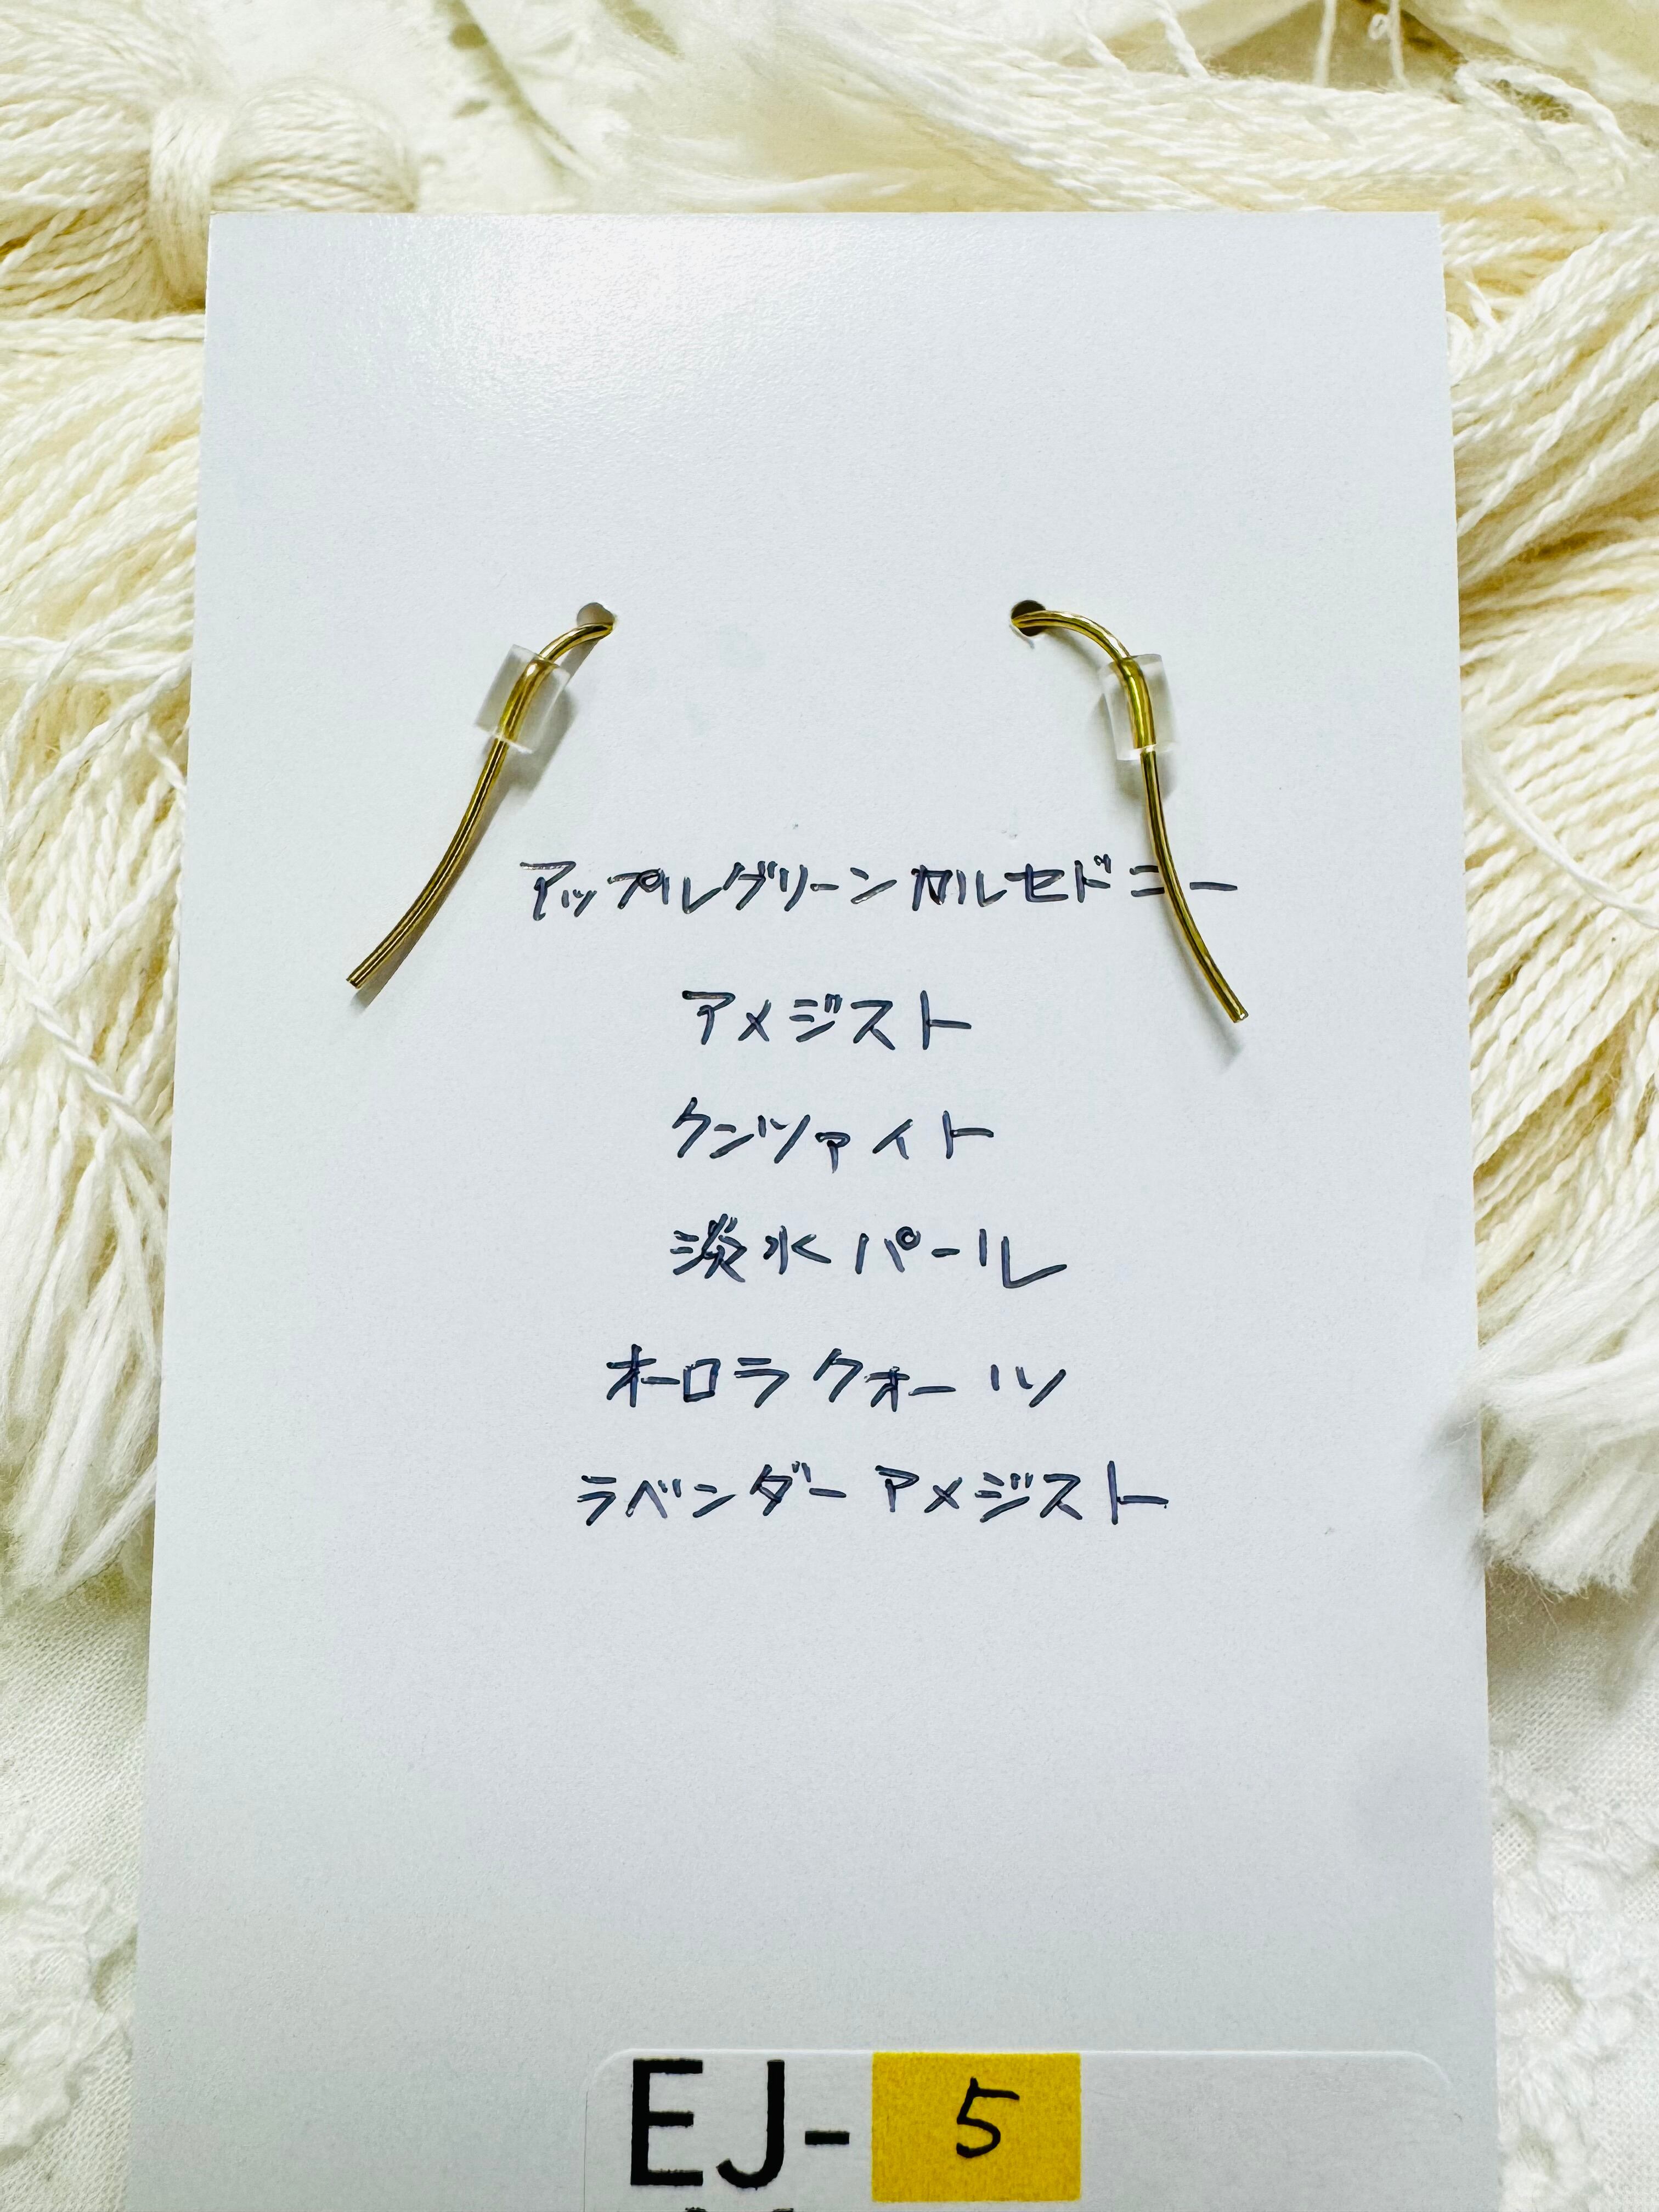 アップルグリーンカルセドニー
アメジスト
クンツァイト
淡水パール
オーロラクォーツ
ラベンダーアメジスト
EJ-5